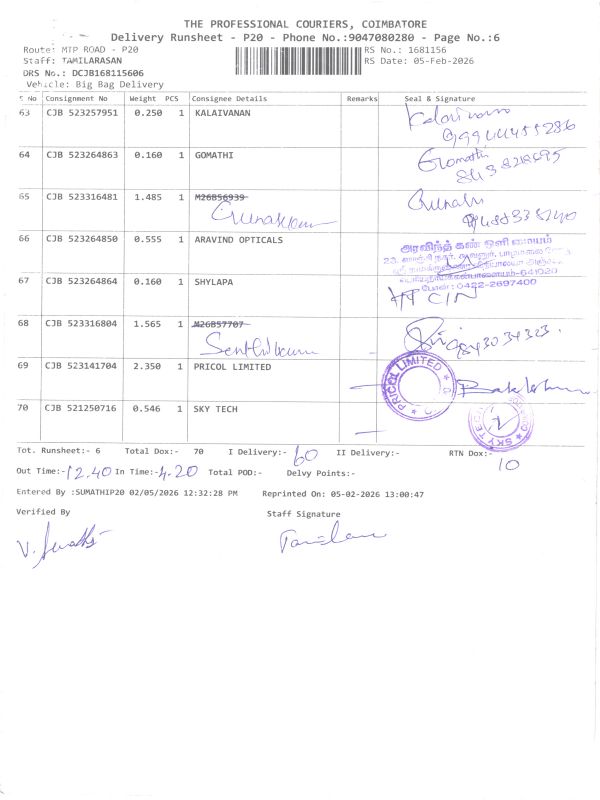 THE PROFESSIONAL COURIERS, COIMBATORE
Delivery Runsheet - P20 - Phone No.:9047080280 - Page No.:6
Route: MTP ROAD - P20
RS No.: 1681156
Staff: TAMILARASAN
RS Date: 05-Feb-2026
DRS No.: DCJB168115606
Vehicle: Big Bag Delivery
S No Consignment No Weight PCS Consignee Details Remarks Seal & Signature
63 CJB 523257951 0.250 1 KALAIVANAN
64 CJB 523264863 0.160 1 GOMATHI
Gomathi
65 CJB 523316481 1.485 1 M26B56939
66 CJB 523264850 0.555 1 ARAVIND OPTICALS
அரவிந்த் கண் ஒளி மையம்
641020
0422-2697400
67 CJB 523264864 0.160 1 SHYLAPA
68 CJB 523316804 1.565 1 M26B57707
Senthilkumar
69 CJB 523141704 2.350 1 PRICOL LIMITED
PRICOL LIMITED
70 CJB 521250716 0.546 1 SKY TECH
SKY TECH
Tot. Runsheet:- 6 Total Dox:- 70 I Delivery:- 60 II Delivery:- RTN Dox:- 10
Out Time:- 12.40 In Time:- 4.20 Total POD:- Delvy Points:-
Entered By :SUMATHIP20 02/05/2026 12:32:28 PM Reprinted On: 05-02-2026 13:00:47
Verified By Staff Signature